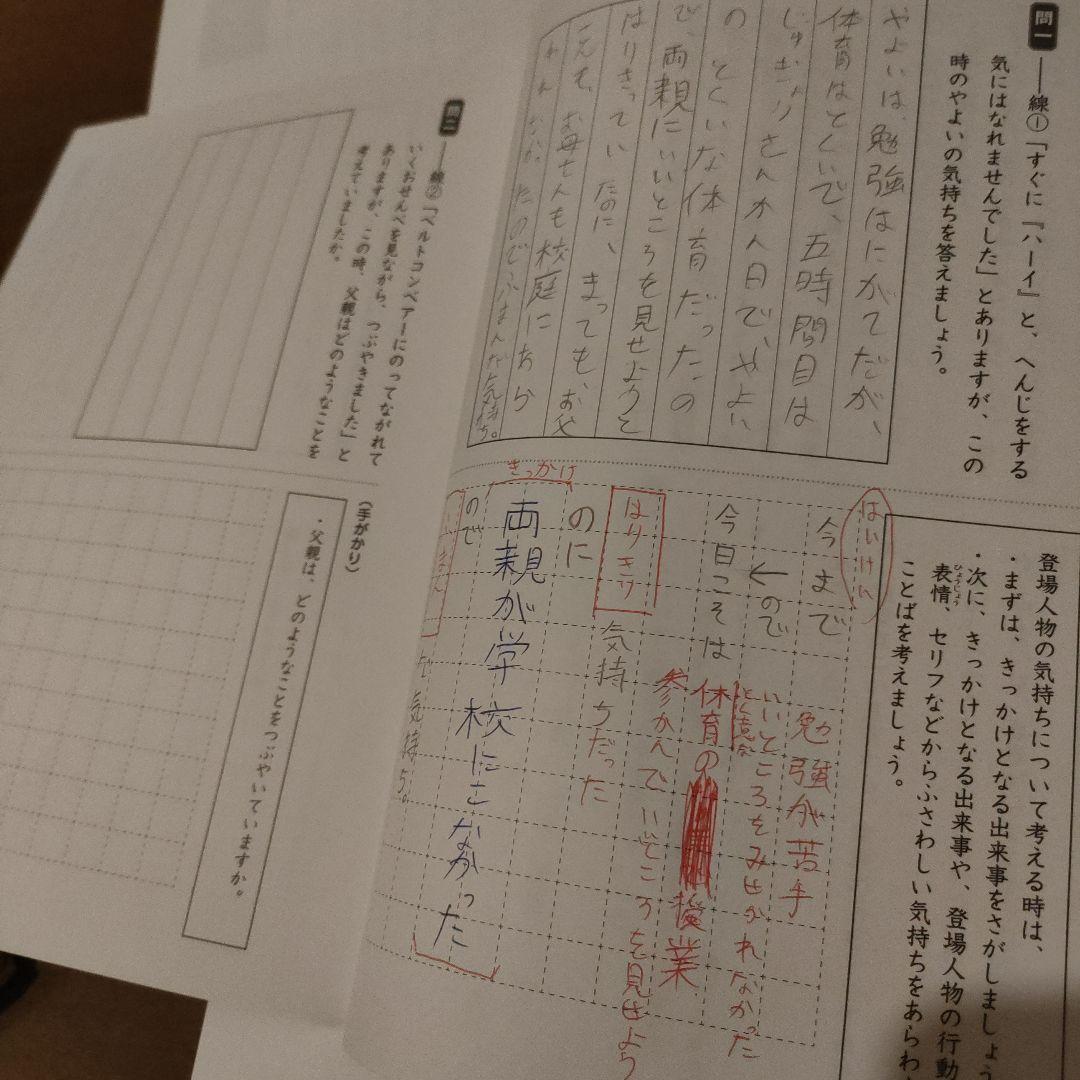 問一
――線①「すぐに『ハーイ』と、へんじをする
気にはなれませんでした」とありますが、この
時のやよいの気持ちを答えましょう。
やよいは、勉強はにがてだが、
体育はとくいで、五時間目は
じゅぎょうさんかん日で、やよい
の とくいな体育だったの
で、両親にいいところを見せようと
はりきってい たのに、まっても、お父
さんも、お母さんも校庭にあら
われ なかったのでふまんな気持ち。
登場人物の気持ちについて考える時は、
・まずは、きっかけとなる出来事をさがしましょう
・次に、きっかけとなる出来事や、登場人物の行動
表情、セリフなどからふさわしい気持ちをあらわ
ひょうじょう
ことばを考えましょう。
はいけい
今まで 勉強が苦手
ので いいところをみせられなかった
←
今日こそは とく意な
体育の 授業
参かんでいいところを見せよう
はりきう 気持ちだった
のに
きっかけ
両親が学校にこなかった
ので
な気持ち。
問二
――線②「ベルトコンベアーにのってながれて
いくおせんべを見ながら、つぶやきました」と
ありますが、この時、父親はどのようなことを
考えていましたか。
(手がかり)
・父親は、どのようなことをつぶやいていますか。